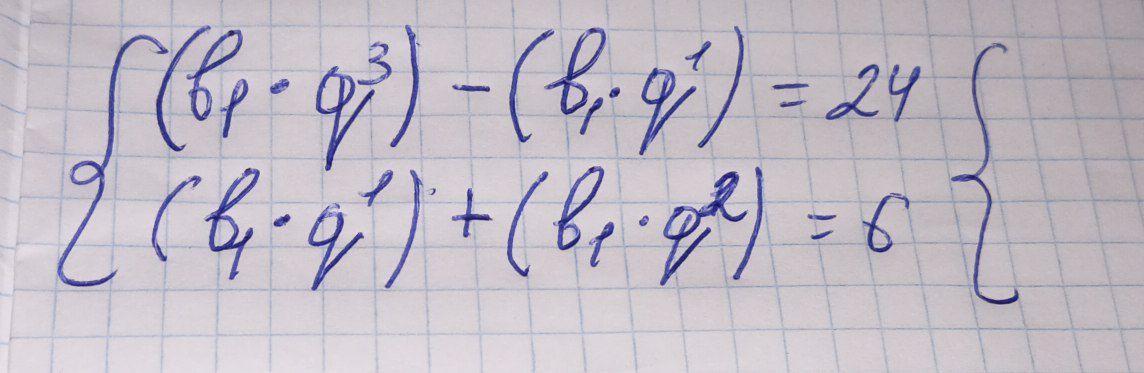 { (b₁ · q³) − (b₁ · q¹) = 24 {
(b₁ · q¹) + (b₁ · q²) = 6